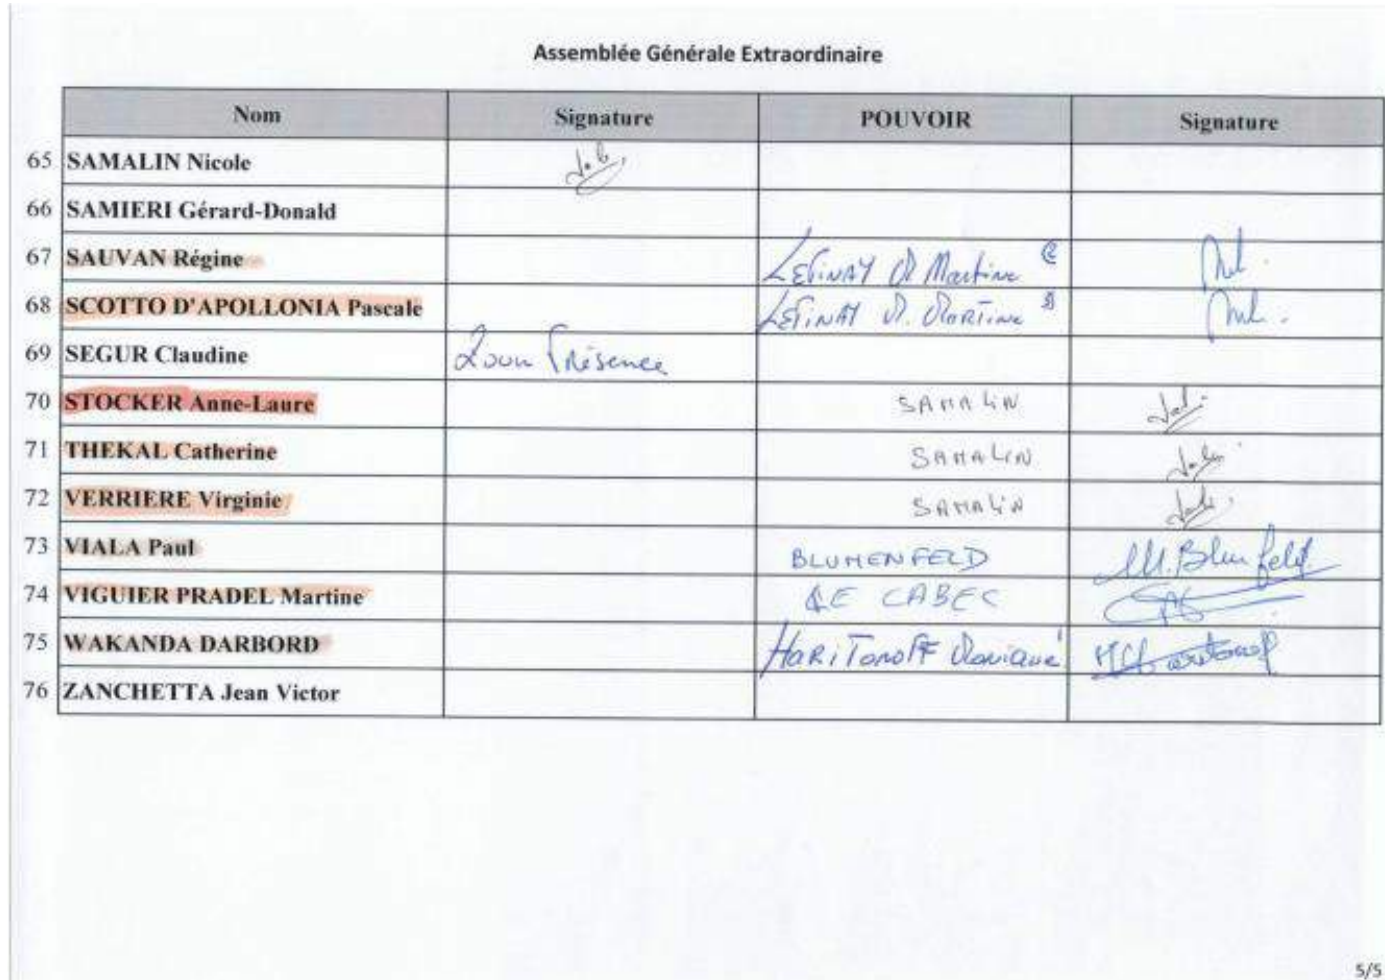 Assemblée Générale Extraordinaire
Nom Signature POUVOIR Signature
65 SAMALIN Nicole
66 SAMIERI Gérard-Donald
67 SAUVAN Régine Martine
68 SCOTTO D'APOLLONIA Pascale
69 SEGUR Claudine Zoom Présence
70 STOCKER Anne-Laure SAMALIN
71 THEKAL Catherine SAMALIN
72 VERRIERE Virginie SAMALIN
73 VIALA Paul BLUMENFELD M. Blumenfeld
74 VIGUIER PRADEL Martine LE CABEC
75 WAKANDA DARBORD HARITONOFF Monique
76 ZANCHETTA Jean Victor
5/5